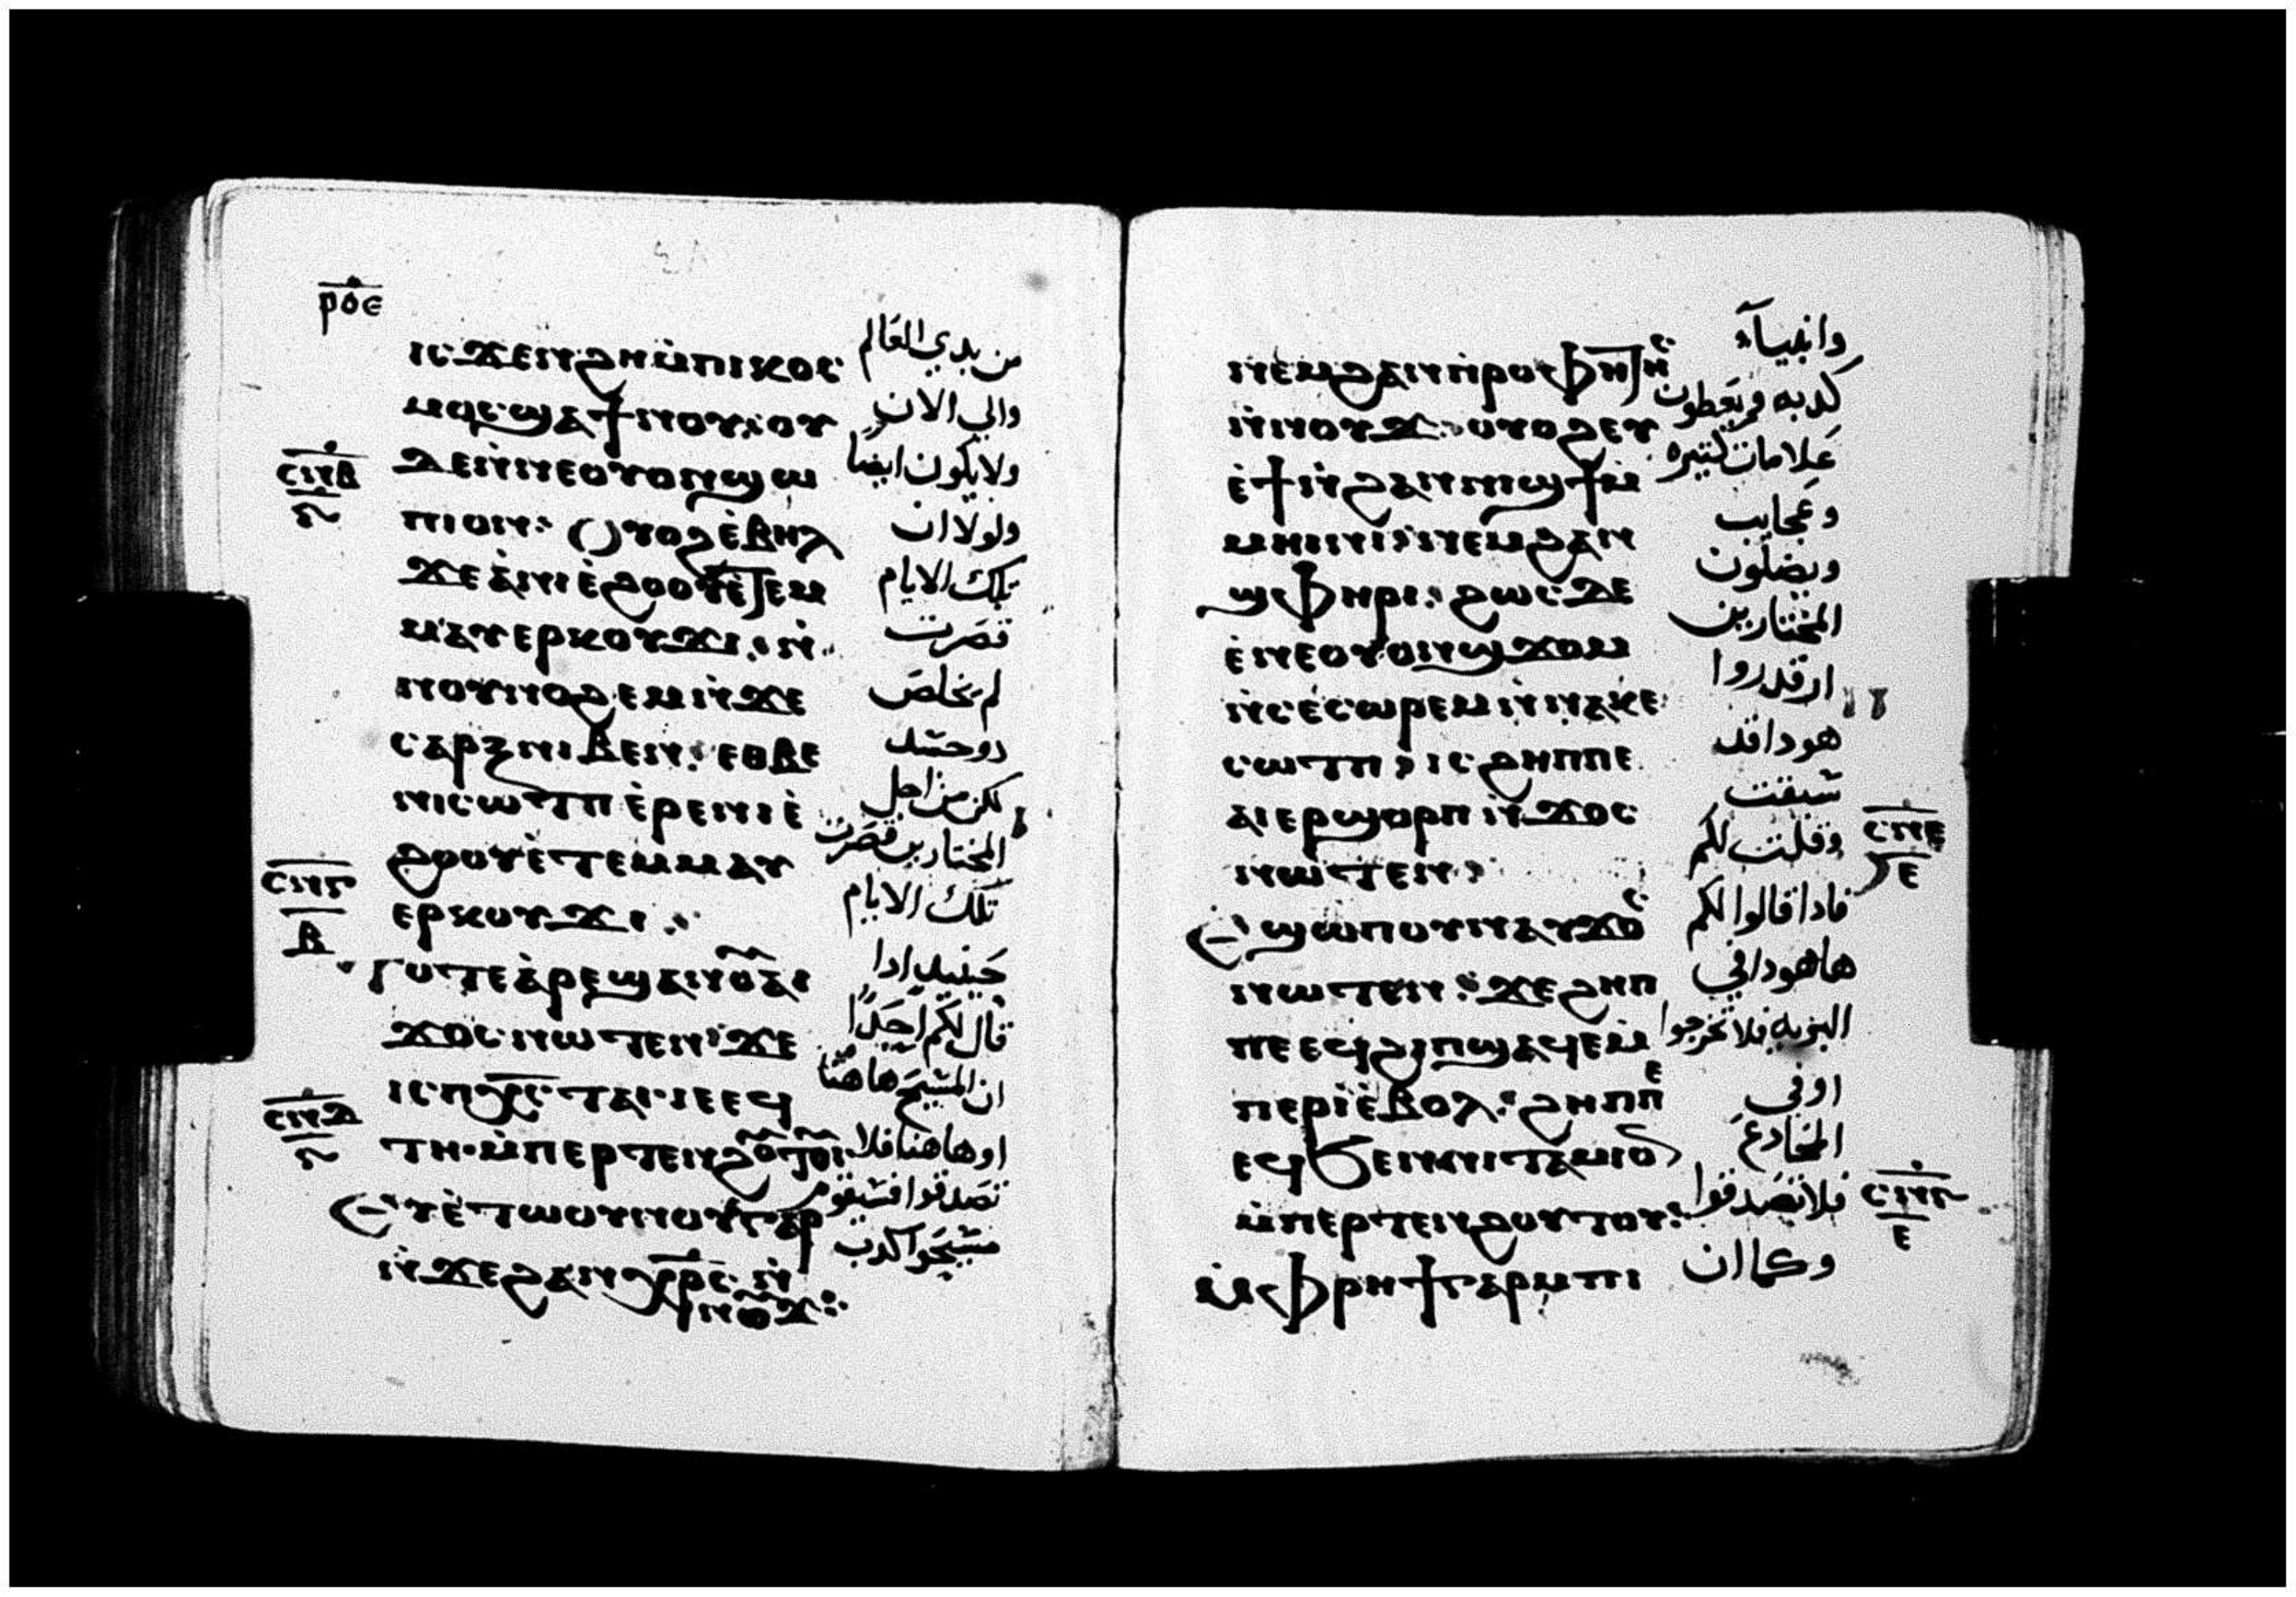 ⲣⲟⲉ
ⲓⲥϫⲉⲛϩⲏⲙ̀ⲡⲓⲕⲟⲥ
من بدي العالم
ⲙⲟⲥϣⲁϯⲛⲟⲩ:ⲟⲩ
والي الان
ⲥⲛⲃ
ⲇⲉⲛ̀ⲛⲉⲟⲩⲟⲛϣⲱ
ولا يكون ايضا
ⲡⲓⲟⲛ: ⲟⲩⲟϩⲉ̀ⲃⲏⲗ
ولولا ان
ϫⲉⲁ̀ⲛⲓⲉ̀ϩⲟⲟⲩⲉ̀ⲧⲉⲙ
تلك الايام
ⲙⲁⲩⲉⲣⲕⲟⲩϫⲓ: ⲛ̀
قصرت
ⲛⲟⲩⲛⲟϩⲉⲙⲛ̀ϫⲉ
لم يخلص
ⲥⲁⲣⲝⲛⲓⲃⲉⲛ: ⲉⲑⲃⲉ
دو حسد
ⲛⲓⲥⲱⲧⲡⲉ̀ⲣⲉⲛⲓⲉ̀
لكن من اجل
ϩⲟⲟⲩⲉ̀ⲧⲉⲙⲙⲁⲩ
المختارين قصرت
ⲥⲛⲅ
ⲃ
ⲉⲣⲕⲟⲩϫⲓ:
تلك الايام
ⲧⲟⲧⲉⲁ̀ⲣⲉϣⲁⲛⲟⲩⲁⲓ
حينيد ادا
ϫⲟⲥⲛⲱⲧⲉⲛ:ϫⲉ
قال لكم احدا
ⲥⲛⲇ
ⲓⲥⲡⲭⲣⲥ ⲧⲁⲓ·ⲓⲉⲉϥ
ان المسيح هاهنا
ⲧⲏ·ⲙ̀ⲡⲉⲣⲧⲉⲛϩⲟⲩⲧⲟⲩ:
او هاهنا فلا
ⲉⲩⲉ̀ⲧⲱⲟⲩⲛⲟⲩⲅⲁⲣ
تصدقوا فسيقوم
ⲛ̀ϫⲉϩⲁⲛⲭⲣⲥ ⲛ̀
مسيحوا كدب
ⲛⲟⲩϫ:
ⲛⲉⲙϩⲁⲛⲡ̀ⲣⲟⲫⲏⲧⲏⲥ
وانبياء
ⲛ̀ⲛⲟⲩϫ: ⲟⲩⲟϩⲉⲩ
كدبه ويعطون
ⲉ̀ϯⲛ̀ϩⲁⲛⲛⲓϣϯⲙ̀
علامات كتيره
ⲙⲏⲓⲛⲓ:ⲛⲉⲙϩⲁⲛ
وعجايب
ϣⲫⲏⲣⲓ: ϩⲱⲥⲇⲉ
ويضلون
ⲉ̀ⲛⲉⲟⲩⲟⲛϣϫⲟⲙ
المختارين
ⲛ̀ⲥⲉⲥⲱⲣⲉⲙⲛ̀ⲛⲁⲕⲉ
ان قدروا
ⲥⲱⲧⲡ: ⲓⲥϩⲏⲡⲡⲉ
هودا قد
ⲁⲓⲉⲣϣⲟⲣⲡⲛ̀ϫⲟⲥ
سبقت
ⲥⲛⲉ
ⲉ
ⲛⲱⲧⲉⲛ:
وقلت لكم
ⲉϣⲱⲡⲟⲩⲛⲁⲩϫⲟⲥ
فادا قالوا لكم
ⲛⲱⲧⲉⲛ: ϫⲉϩⲏⲡ
هاهودا في
ⲡⲉⲉϥϩⲓⲡϣⲁϥⲉⲙ̀
البريه فلا تخرجوا
ⲡⲉⲣⲓ̀ⲉ̀ⲃⲟⲗ: ϩⲏⲡⲡⲉ
او في
ⲉϥϧⲉⲛⲛⲓⲧⲁⲙⲓⲟⲛ
المخادع
ⲙ̀ⲡⲉⲣⲧⲉⲛϩⲟⲩⲧⲟⲩ:
فلا تصدقوا
ⲥⲛⲋ
ⲉ
ⲙ̀ⲫⲣⲏϯⲅⲁⲣⲙⲡⲓ
وكما ان